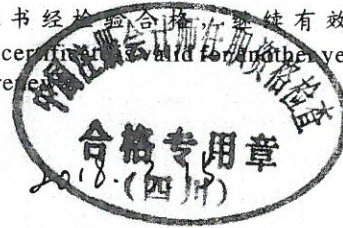 书经检验合格，继续有效
certificate is valid for another ye
renew
中国注册会计师任职资格检查
合格专用章
(四川)
2018.